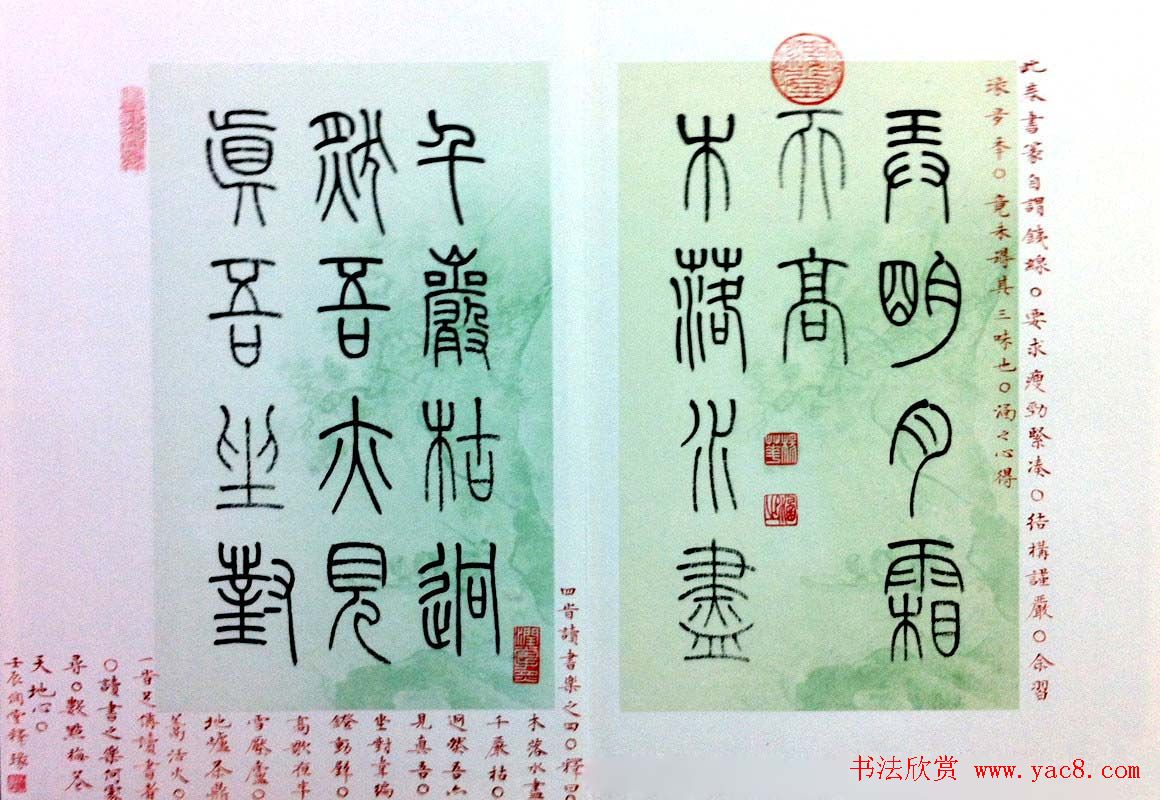 此表書篆自謂鐵線○要求瘦勁緊湊○結構謹嚴○余習
多年○竟未得其三味也○涵之心得
弄明月霜
天高
木落水盡
千巖枯迥
然吾亦見
眞吾坐對
四旹讀書樂之四○釋曰○
木落水盡
千巖枯○
迥然吾亦
見真吾○
坐對韋編
鐙動壁○
高歌夜半
雪壓廬○
地爐茶鼎
活火○
一讀書者
○讀書之樂何處
尋○數點梅花
天地心○
壬辰
书法欣赏 www.yac8.com